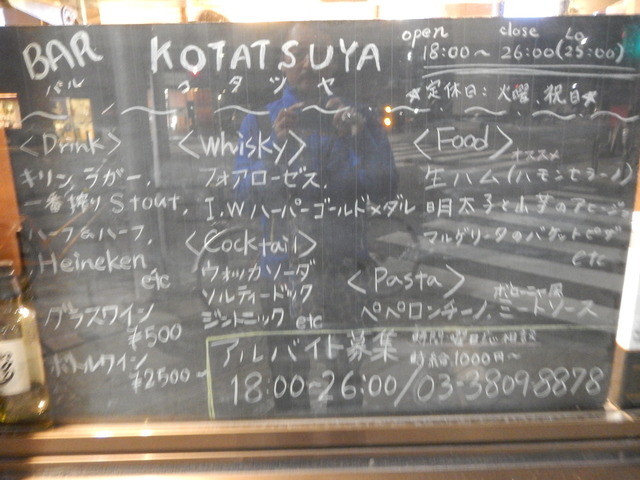 BAR KOTATSUYA
バル コタツヤ
open close Lo
18:00〜 26:00(25:00)
☆定休日:火曜、祝日☆
<Drink>
キリンラガー、
一番搾りStout、
ハーフ&ハーフ、
Heineken
etc
グラスワイン
¥500
ボトルワイン
¥2500〜
<Whisky>
フォアローゼス、
I.Wハーパーゴールドメダル
<Cocktail>
ウォッカソーダ
ソルティードック
ジントニック etc
<Food>
オススメ
生ハム(ハモンセラーノ)
明太子と山芋のアヒージョ
マルゲリータのバケットピザ
etc
<Pasta>
ボローニャ風
ペペロンチーノ、ミートソース
アルバイト募集
時間、曜日応相談
時給1000円〜
18:00〜26:00/03-3809-8878